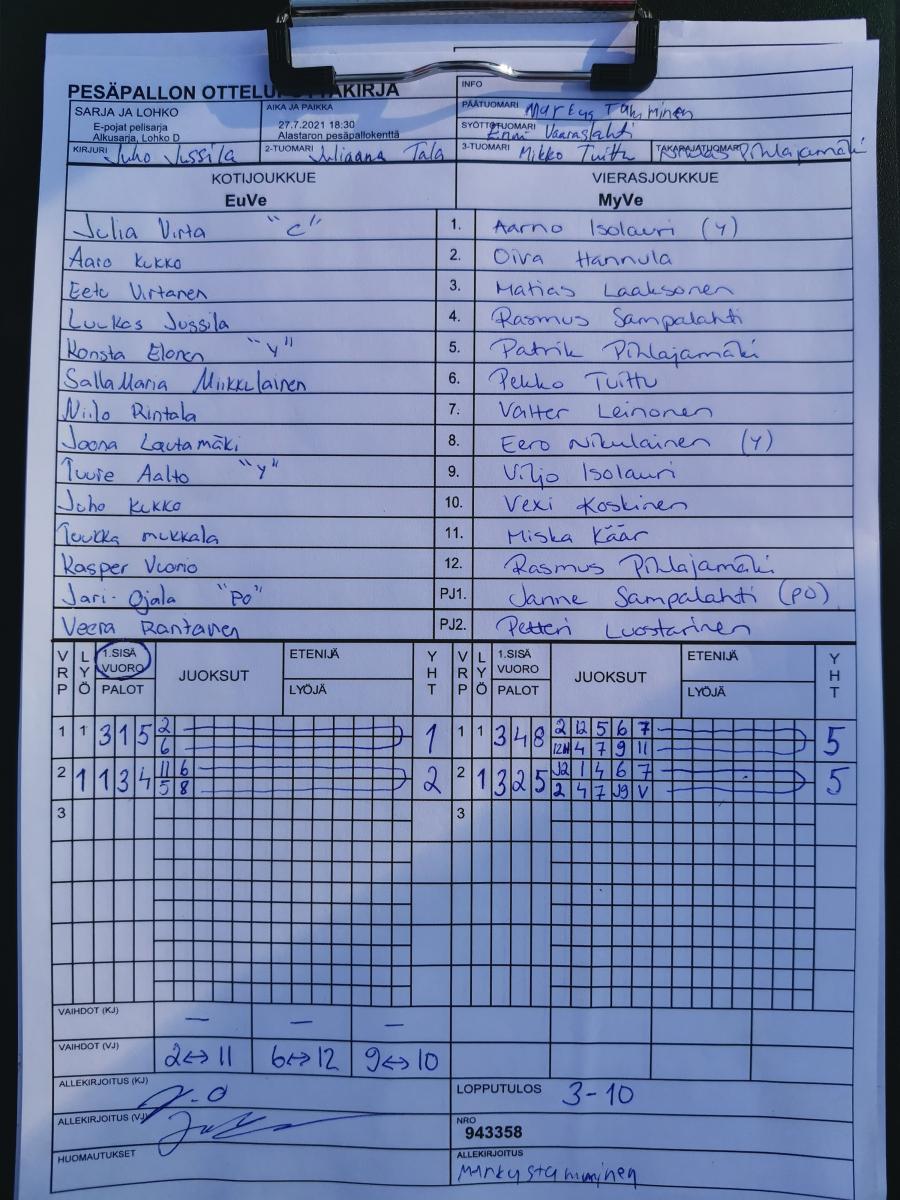 PESÄPALLON OTTELUPÖYTÄKIRJA
INFO
SARJA JA LOHKO
E-pojat pelisarja
Alkusarja, Lohko D
AIKA JA PAIKKA
27.7.2021 18:30
Alastaron pesäpallokenttä
PÄÄTUOMARI Markus Tamminen
SYÖTTÖTUOMARI Enni Vaaraslahti
KIRJURI Juho Jussila
2-TUOMARI Juliaana Tala
3-TUOMARI Mikko Tuittu
TAKARAJATUOMARI Pihlajamäki
KOTIJOUKKUE
EuVe
VIERASJOUKKUE
MyVe
Julia Virta "C" 1. Aarno Isolauri (y)
Aaro Kukko 2. Oiva Hannula
Eetu Virtanen 3. Matias Laaksonen
Luukas Jussila 4. Rasmus Sampalahti
Konsta Elonen "y" 5. Patrik Pihlajamäki
SallaMaria Miikkulainen 6. Pekko Tuittu
Niilo Rintala 7. Valtter Leinonen
Joona Lautamäki 8. Eero Nikulainen (y)
Tuure Aalto "y" 9. Viljo Isolauri
Juho Kukko 10. Vexi Koskinen
Tuukka mukkala 11. Miska Käär
Kasper Vuorio 12. Rasmus Pihlajamäki
Jari Ojala "PO" PJ1. Janne Sampalahti (PO)
Veera Rantanen PJ2. Petteri Luostarinen
VRP LYÖ 1.SISÄ VUORO PALOT JUOKSUT ETENIJÄ LYÖJÄ YHT VRP LYÖ 1.SISÄ VUORO PALOT JUOKSUT ETENIJÄ LYÖJÄ YHT
1 1 3 1 5 2 1 1 1 3 4 8 2 12 5 6 7 5
6 12H 4 7 9 11
2 1 1 3 4 11 6 2 2 1 3 2 5 J2 1 4 6 7 5
5 8 2 4 7 J9 V
3 3
VAIHDOT (KJ) — — —
VAIHDOT (VJ) 2↔11 6↔12 9↔10
ALLEKIRJOITUS (KJ) J-O
LOPPUTULOS 3-10
ALLEKIRJOITUS (VJ)
NRO
943358
HUOMAUTUKSET
ALLEKIRJOITUS
Markus tamminen